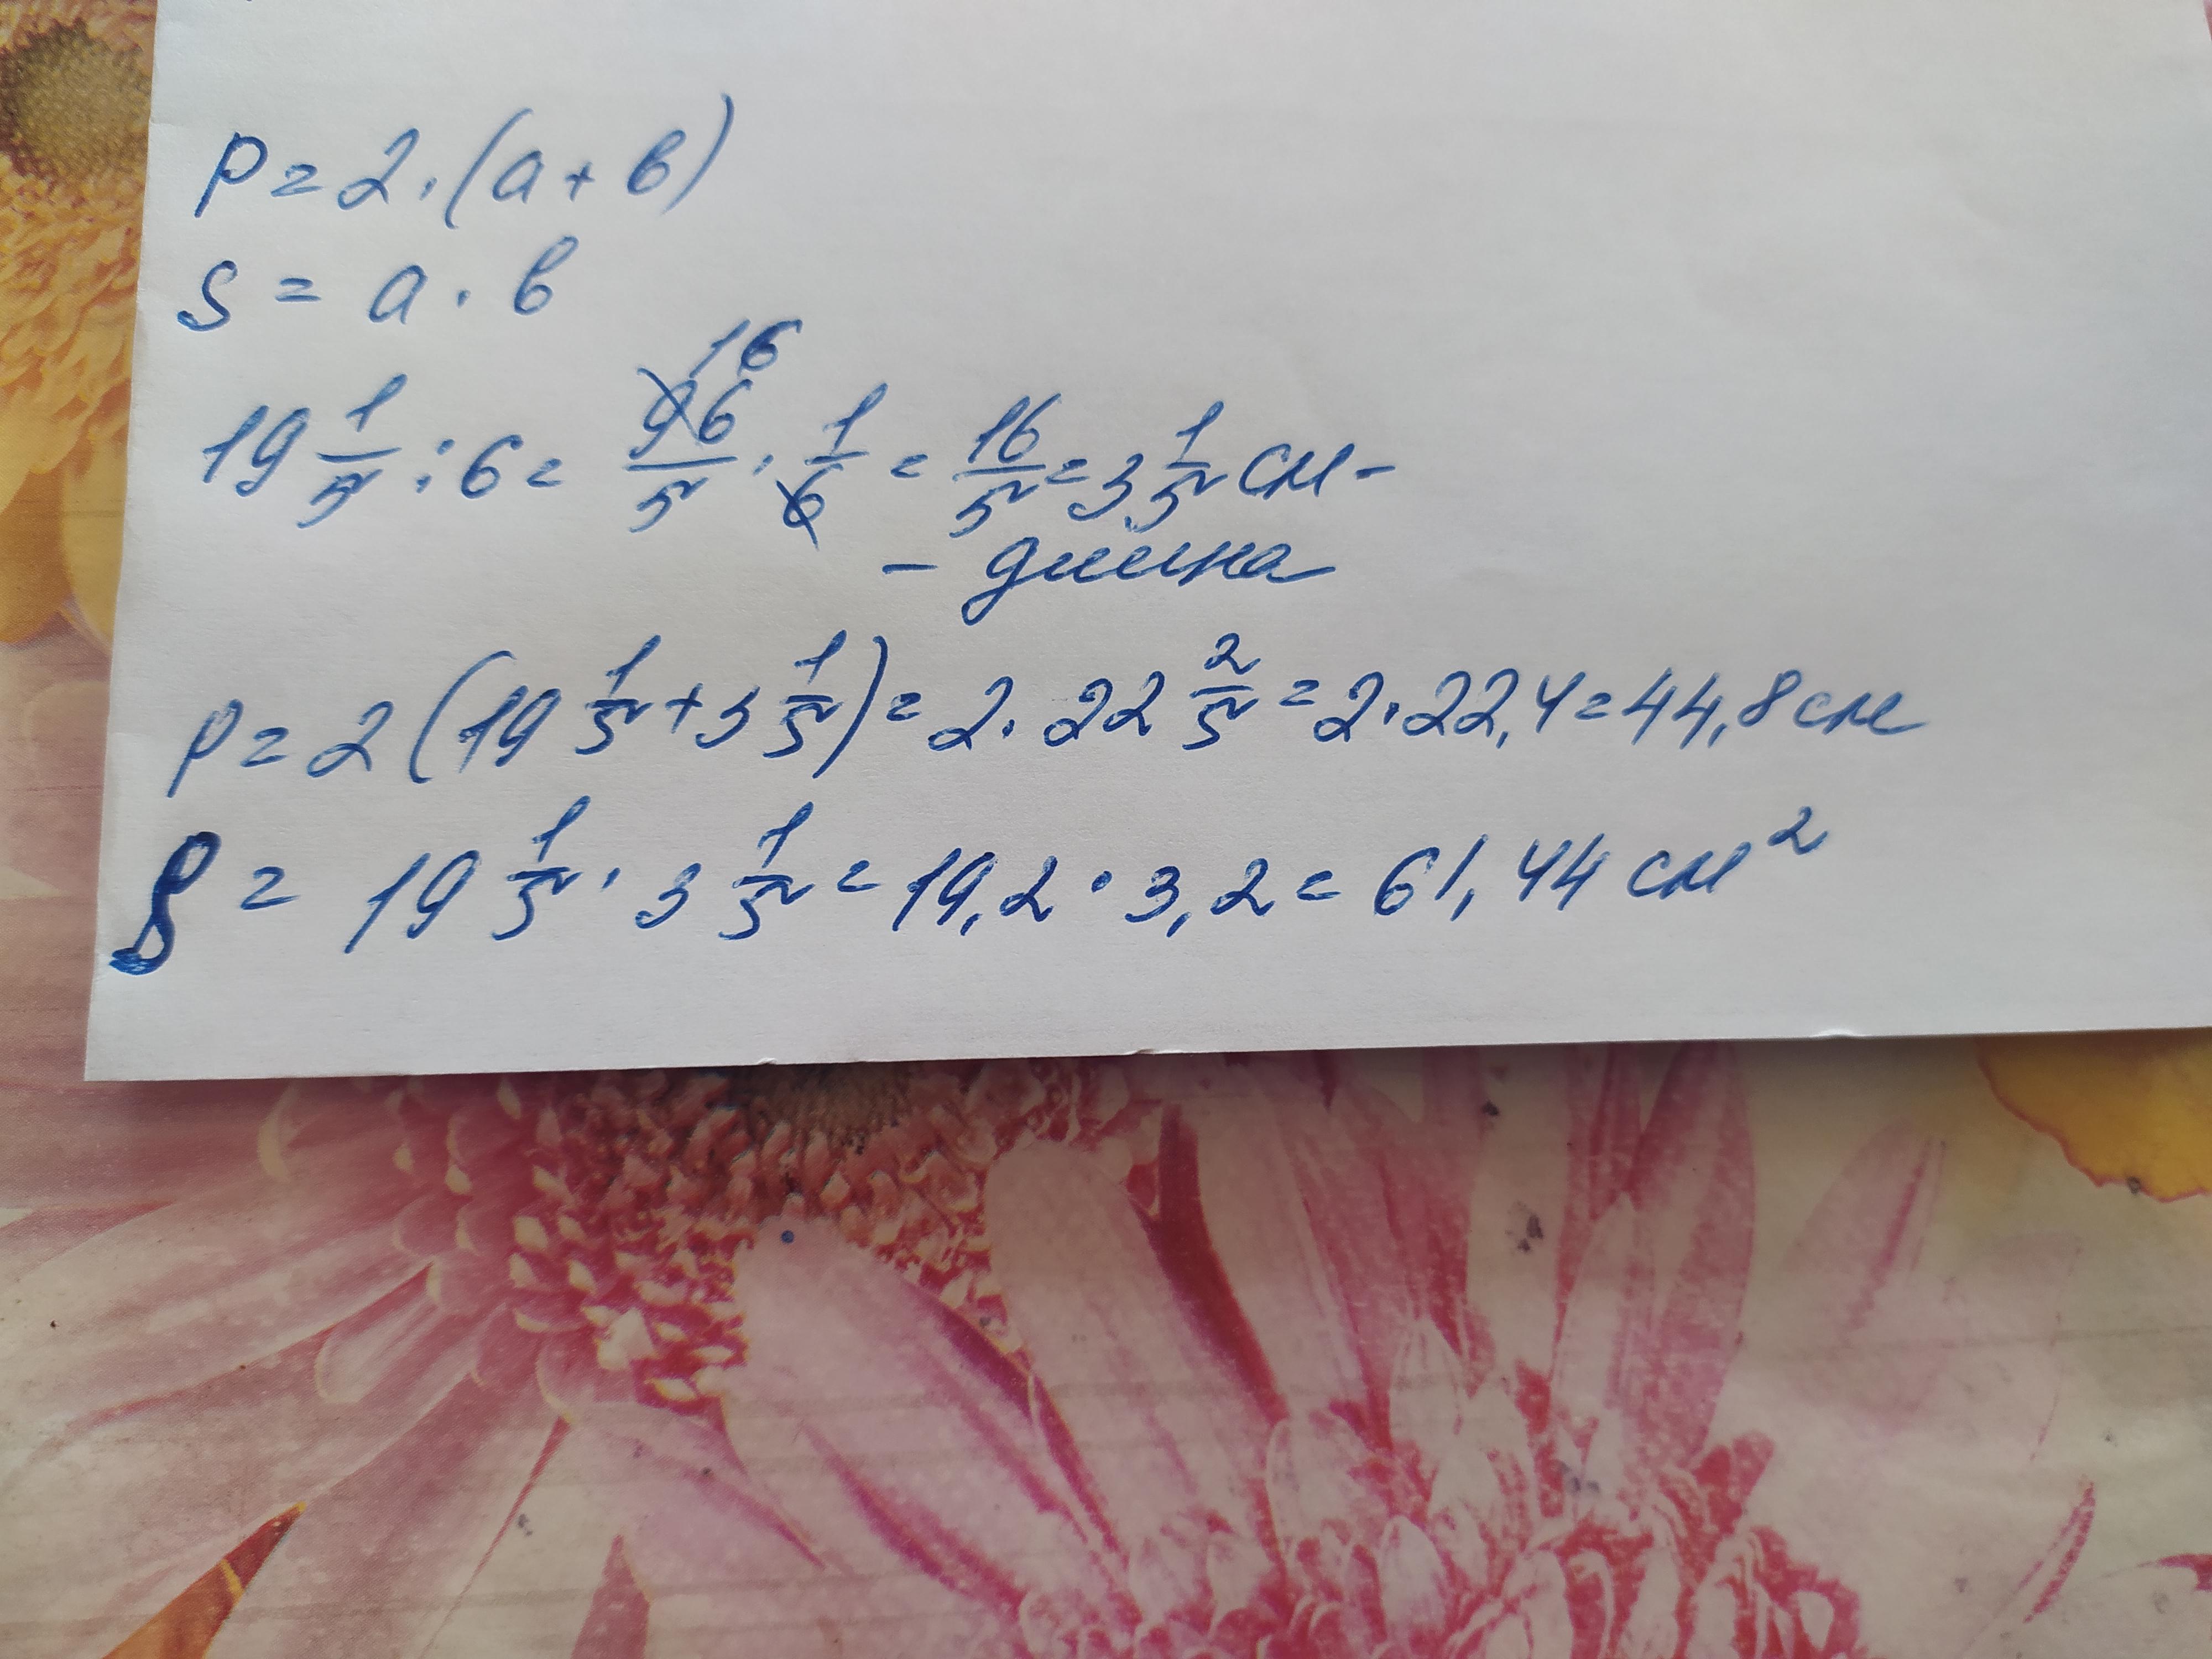 P = 2 · (a + b)
S = a · b
19 1/5 : 6 = 96/5 · 1/6 = 16/5 = 3 1/5 см -
16
- длина
P = 2 (19 1/5 + 3 1/5) = 2 · 22 2/5 = 2 · 22,4 = 44,8 см
S = 19 1/5 · 3 1/5 = 19,2 · 3,2 = 61,44 см²